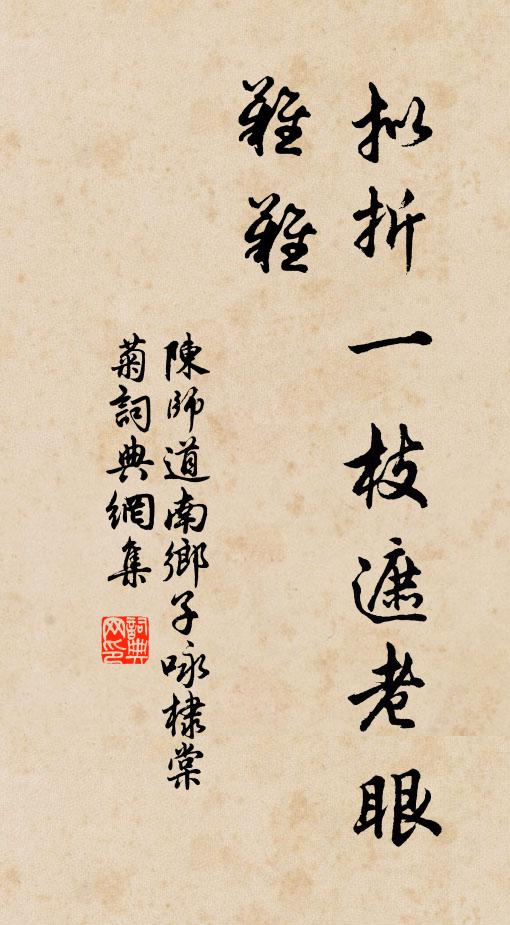 拟折一枝遮老眼
難難
陳師道南鄉子咏棣棠
菊詞典網集
詞典网印